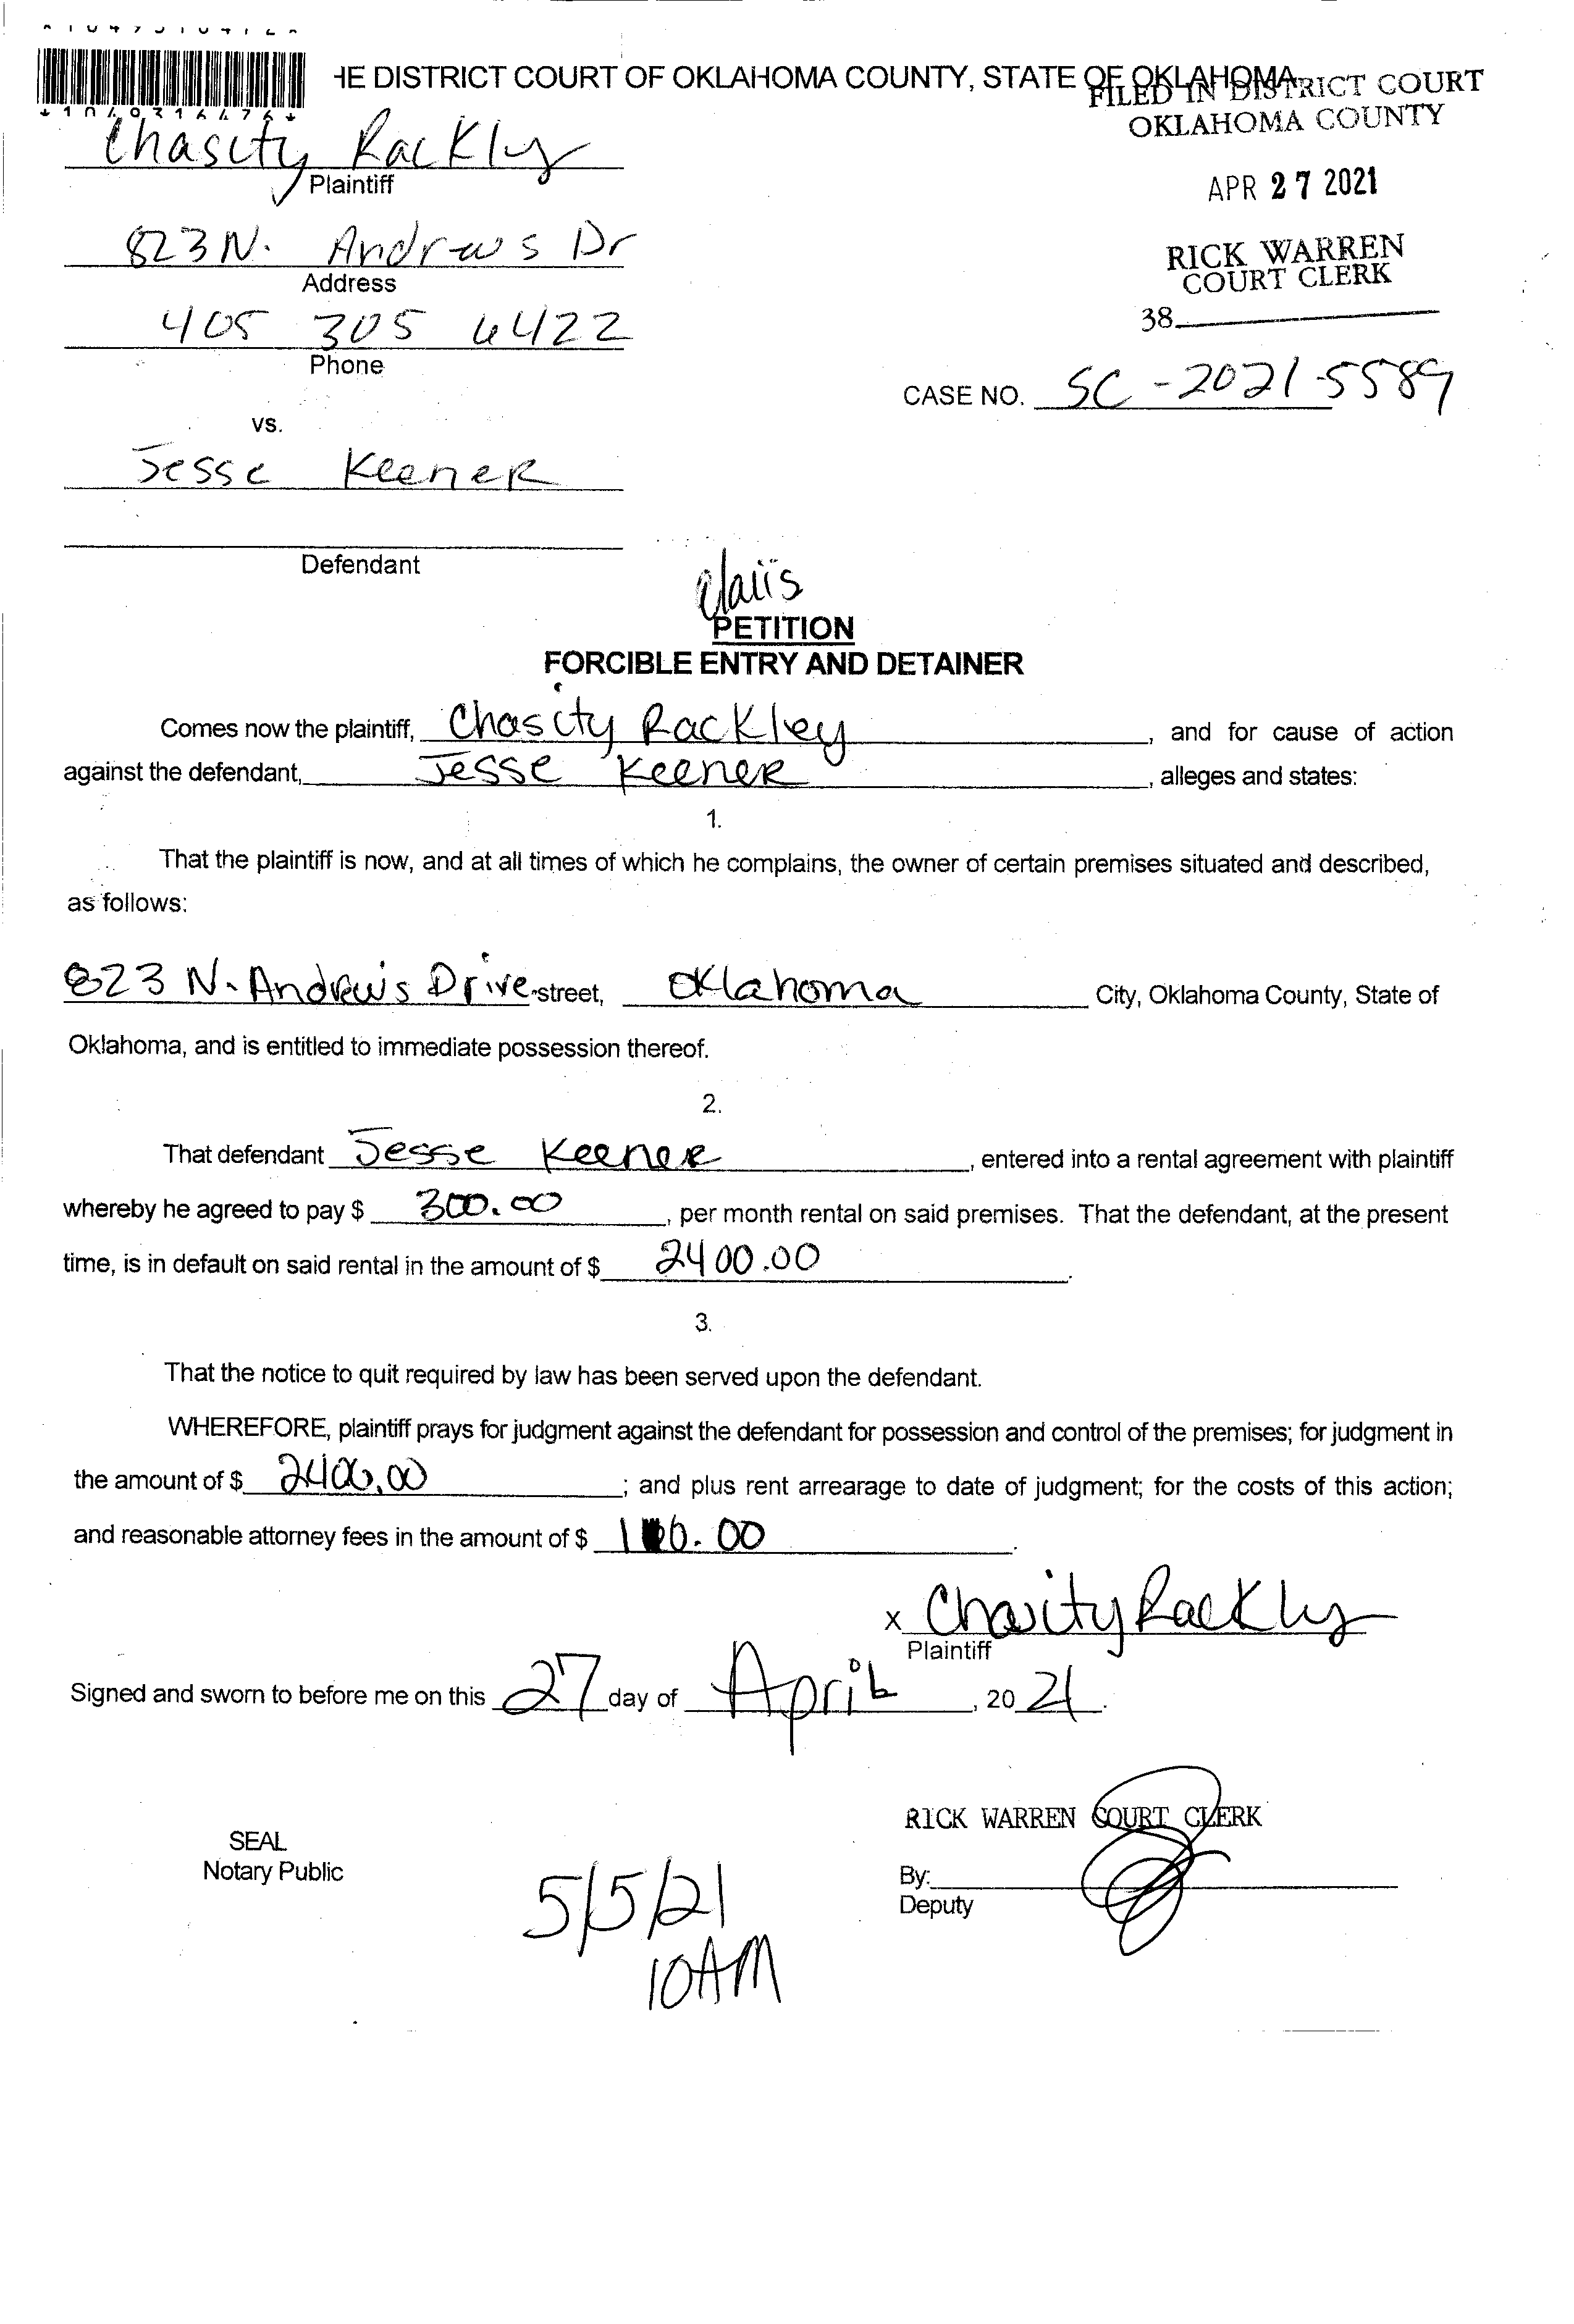 HE DISTRICT COURT OF OKLAHOMA COUNTY, STATE OF OKLAHOMA
FILED IN DISTRICT COURT
OKLAHOMA COUNTY
Chasity Rackly
Plaintiff
APR 27 2021
823 N. Andrews Dr
Address
RICK WARREN
COURT CLERK
405 305 6422
Phone
38
CASE NO. SC-2021-5589
vs.
Jesse Keener
Defendant
PETITION
FORCIBLE ENTRY AND DETAINER
Comes now the plaintiff, Chasity Rackley, and for cause of action
against the defendant, Jesse Keener, alleges and states:
1.
That the plaintiff is now, and at all times of which he complains, the owner of certain premises situated and described,
as follows:
823 N. Andrews Drive street, Oklahoma City, Oklahoma County, State of
Oklahoma, and is entitled to immediate possession thereof.
2.
That defendant Jesse Keener, entered into a rental agreement with plaintiff
whereby he agreed to pay $ 300.00, per month rental on said premises. That the defendant, at the present
time, is in default on said rental in the amount of $ 2400.00.
3.
That the notice to quit required by law has been served upon the defendant.
WHEREFORE, plaintiff prays for judgment against the defendant for possession and control of the premises; for judgment in
the amount of $ 2400.00; and plus rent arrearage to date of judgment; for the costs of this action;
and reasonable attorney fees in the amount of $
x Chasity Rackly
Plaintiff
Signed and sworn to before me on this 27 day of April, 20 21.
RICK WARREN COURT CLERK
SEAL
Notary Public
By:
Deputy
5/5/21
10AM